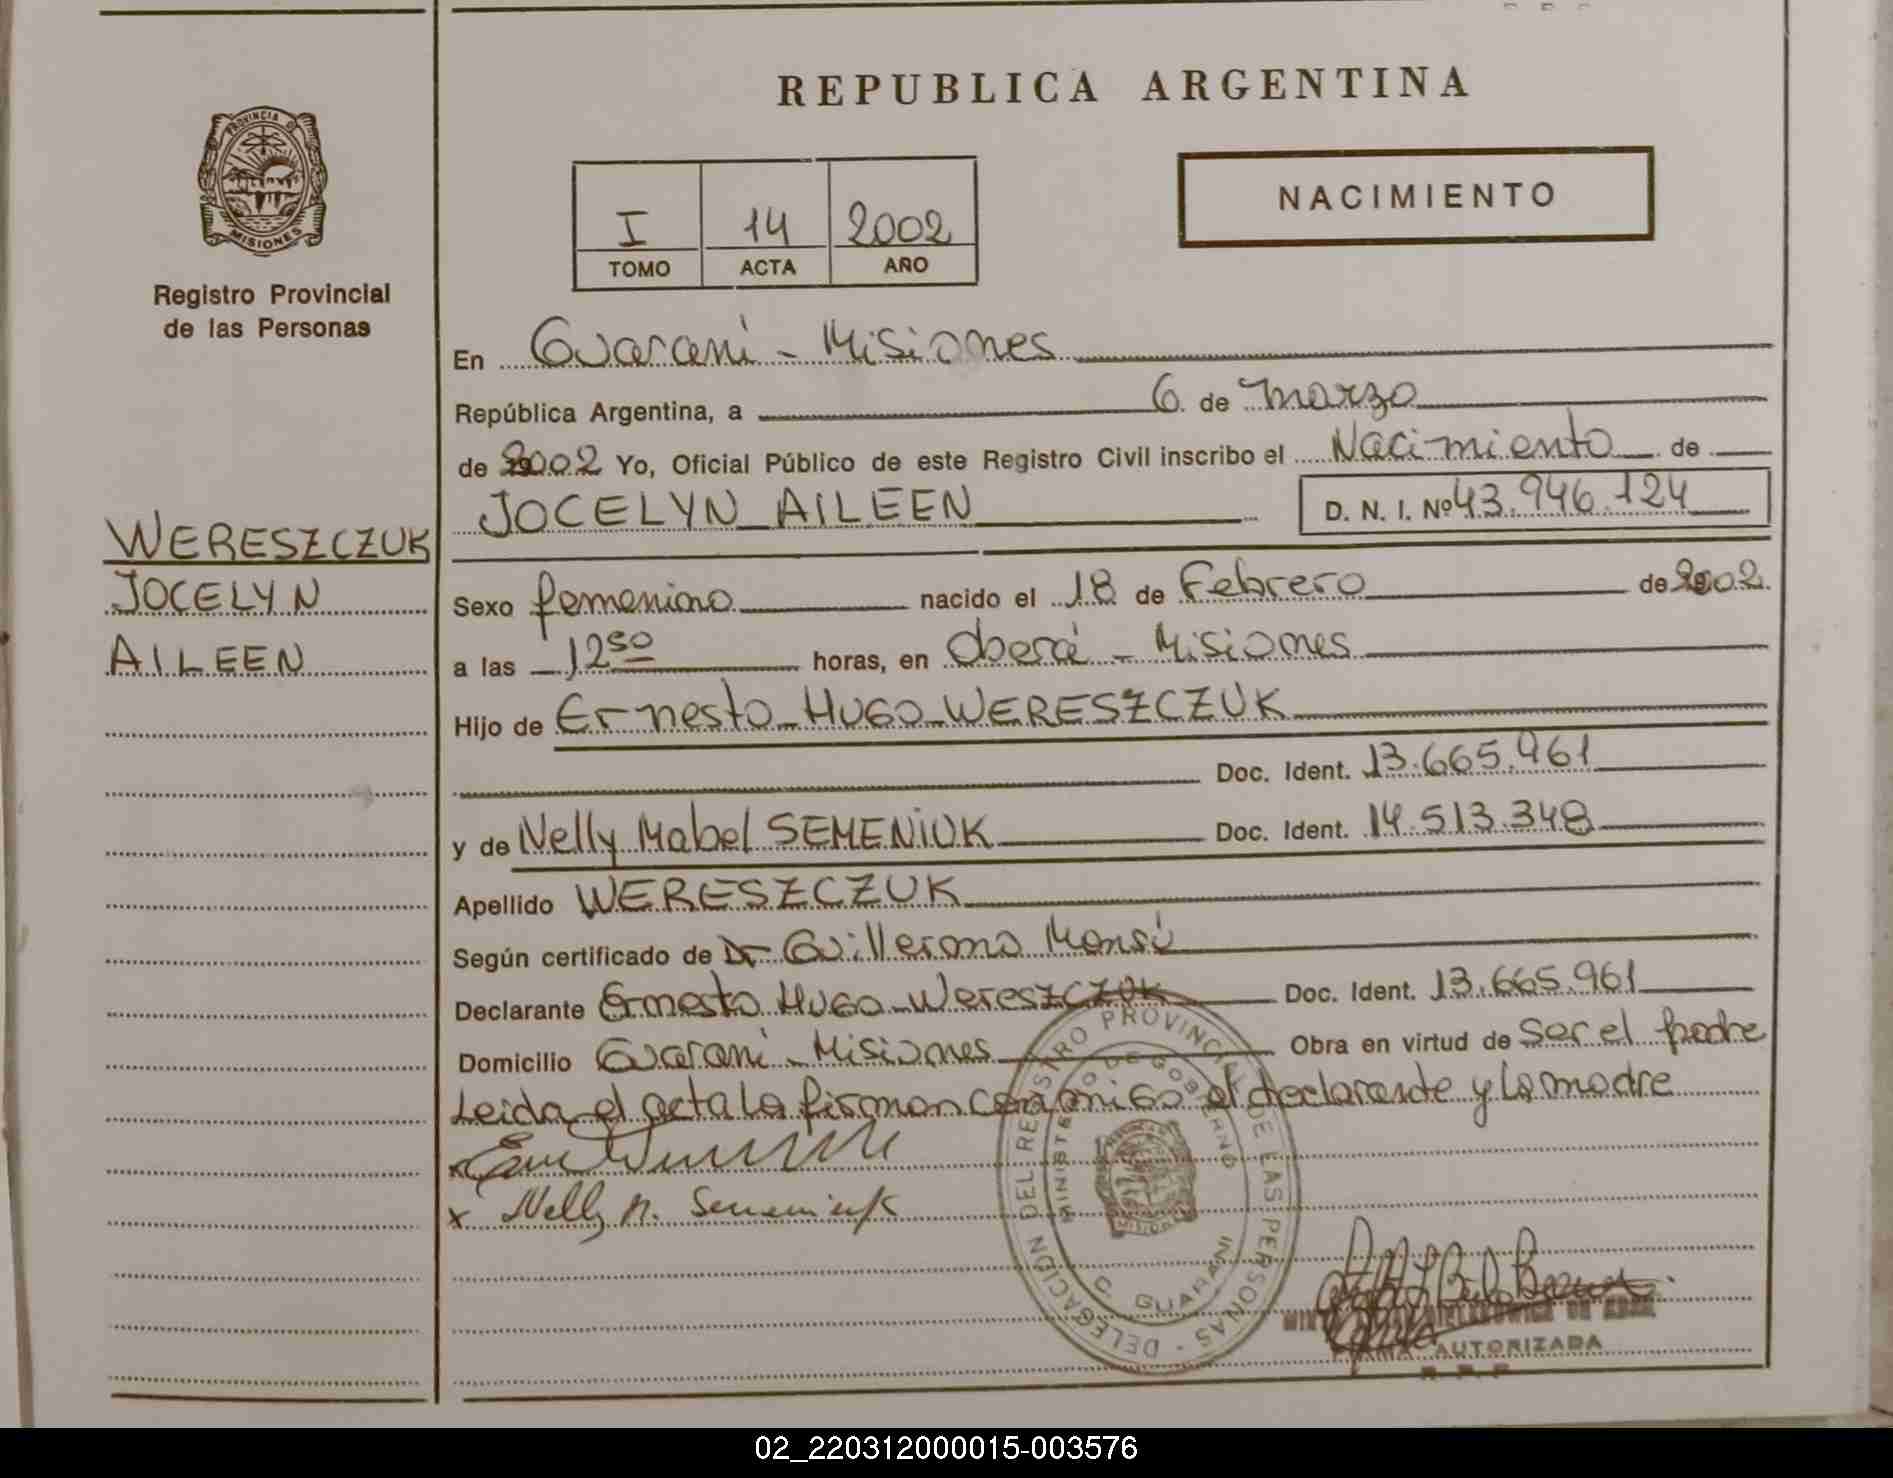 REPUBLICA ARGENTINA
PROVINCIA DE
MISIONES
Registro Provincial
de las Personas
I 14 2002
TOMO ACTA AÑO
NACIMIENTO
En Guaraní - Misiones
República Argentina, a 6 de marzo
de 2002 Yo, Oficial Público de este Registro Civil inscribo el Nacimiento de
JOCELYN AILEEN D. N. I. Nº 43.946.124
WERESZCZUK
JOCELYN
AILEEN
Sexo femenino nacido el 18 de Febrero de 2002.
a las 12 50 horas, en Oberá - Misiones
Hijo de Ernesto Hugo WERESZCZUK
Doc. Ident. 13.665.961
y de Nelly Mabel SEMENIUK Doc. Ident. 14.513.348
Apellido WERESZCZUK
Según certificado de Dr Guillermo Monsú
Declarante Ernesto Hugo Wereszczuk Doc. Ident. 13.665.961
Domicilio Guaraní - Misiones Obra en virtud de ser el padre
Leida el acta la firman conmigo el declarante y la madre
x
x Nelly M. Semeniuk
DELEGACION DEL REGISTRO PROVINCIAL DE LAS PERSONAS -
MINISTERIO DE GOBIERNO
MISIONES
C. GUARANI
FIRMA AUTORIZADA
R. P. P.
02_220312000015-003576